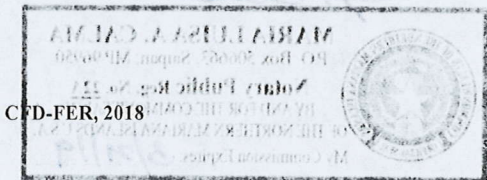 MARIA LUISA A. CALMA
P.O. Box 506663, Saipan, MP 96950
Notary Public Reg. No. 22A
BY AND FOR THE COMMONWEALTH
CFD-FER, 2018
OF THE NORTHERN MARIANA ISLANDS U.S.A.
My Commission Expires